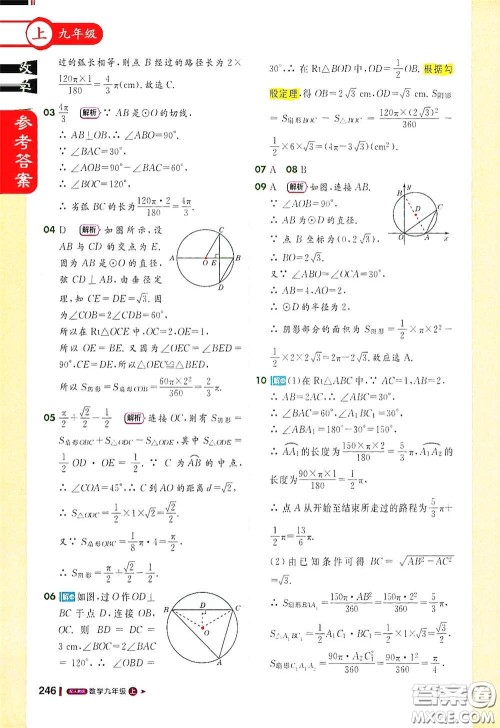 上 九年级
数学
参考答案
过的弧长相等，则点 B 经过的路径长为 2×
120π×1/180 = 4/3 π(cm). 故选 C.
03 4π/3 解析 ∵ AB 是⊙O 的切线，
∴ AB⊥OB, ∴ ∠ABO=90°.
∵ ∠BAC=30°,
∴ ∠BOA=90°-∠BAC=60°,
∴ ∠BOC=120°,
∴ 劣弧 BC 的长为 120π·2/180 = 4π/3.
04 D 解析 如图所示，设
AB 与 CD 的交点为 E.
因为 AB 是⊙O 的直径，
弦 CD⊥AB, 由垂径定
理，知 CE=DE=√3. 因
为∠COB=2∠CDB=60°,
所以在 Rt△OCE 中，OC=2, OE=1,
所以 BE=1. 又∠OEC=∠BED=
90°, ∠BCE=∠BDE, 所以△OEC≌
△BED, 所以 S阴影 = 60π×2²/360 = 2/3 π.
05 π/2+√2/2-1/2 解析 连接 OC, 则有 S阴影 =
S扇形OBC + S△ODC - S△ODE, ∵ S△ODE =
1/2 OD·OE = 1/2, 又∵ C 为 AB 的中点，
∴ ∠COA=45°, ∴ C 到 OA 的距离 d=√2,
∴ S△ODC = √2/2.
又∵ S扇形OBC = 1/8 π·4 = π/2,
∴ S阴影 = π/2+√2/2-1/2.
06 解 如图，过 O 作 OD⊥
BC 于点 D, 连接 OB,
OC, 则 BD = DC =
3 cm, ∵ ∠BAC =
30°, ∴ 在 Rt△BOD 中，OD=1/2 OB. 根据勾
股定理，得 OB=2√3 cm, OD=√3 cm. S阴影
= S扇形BOC - S△BOC = 60π×(2√3)²/360 -
1/2×6×√3=(2π-3√3)(cm²).
07 A 08 B
09 A 解析 如图，连接 AB.
∵ ∠AOB=90°,
∴ AB 为⊙D 的直径.
∵ 点 B 坐标为(0, 2√3),
∴ OB=2√3.
又∵ ∠ABO=∠OCA=30°,
∴ AB=4, OA=2,
∴ ⊙D 的半径为 2,
∴ 阴影部分的面积为 S阴影 = 1/2 π×2²-
1/2×2×2√3=2π-2√3. 故选 A.
10 解 (1)在 Rt△ABC 中，∵ AC=1, AB=2,
∴ ∠ABC=30°, ∠A₁BC₁=30°,
∴ ∠ABA₁=180°-30°=150°,
∴ AA₁的长度为 150×π×2/180 = 5/3 π, A₁A₂的
长度为 90×π×1/180 = 1/2 π,
∴ 点 A 从开始到结束所走过的路程为 5/3 π+
1/2 π=13/6 π.
(2)由已知条件可得 BC = √(AB²-AC²)
=√3,
246 配人教版 数学九年级 上
答案圈